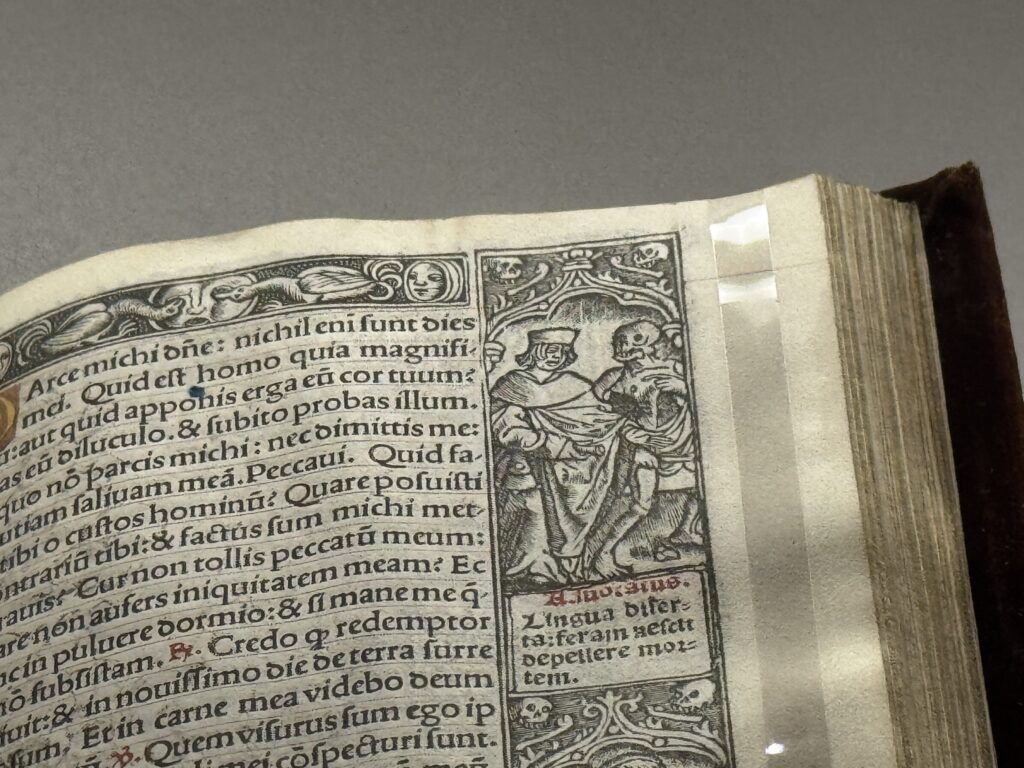 Arce michi dñe: nichil eni sunt dies
mei. Quid est homo quia magnifi-
aut quid apponis erga eū cor tuum?
as eū diluculo. & subito probas illum.
quo nõ parcis michi: nec dimittis me:
utiam saliuam meã. Peccaui. Quid fa-
tibi o custos hominũ? Quare posuisti
ntrariũ tibi: & factus sum michi met-
rauis? Cur non tollis peccatũ meum:
are non aufers iniquitatem meam? Ec
ne in puluere dormio: & si mane me q̃-
nõ subsistam. ℟. Credo ꝙ redemptor
& in nouissimo die de terra surre
Et in carne mea videbo deum
℣. Quem visurus sum ego ip
mei cõspecturi sunt.
Lingua diser-
ta: feram nescit
depellere mor-
tem.